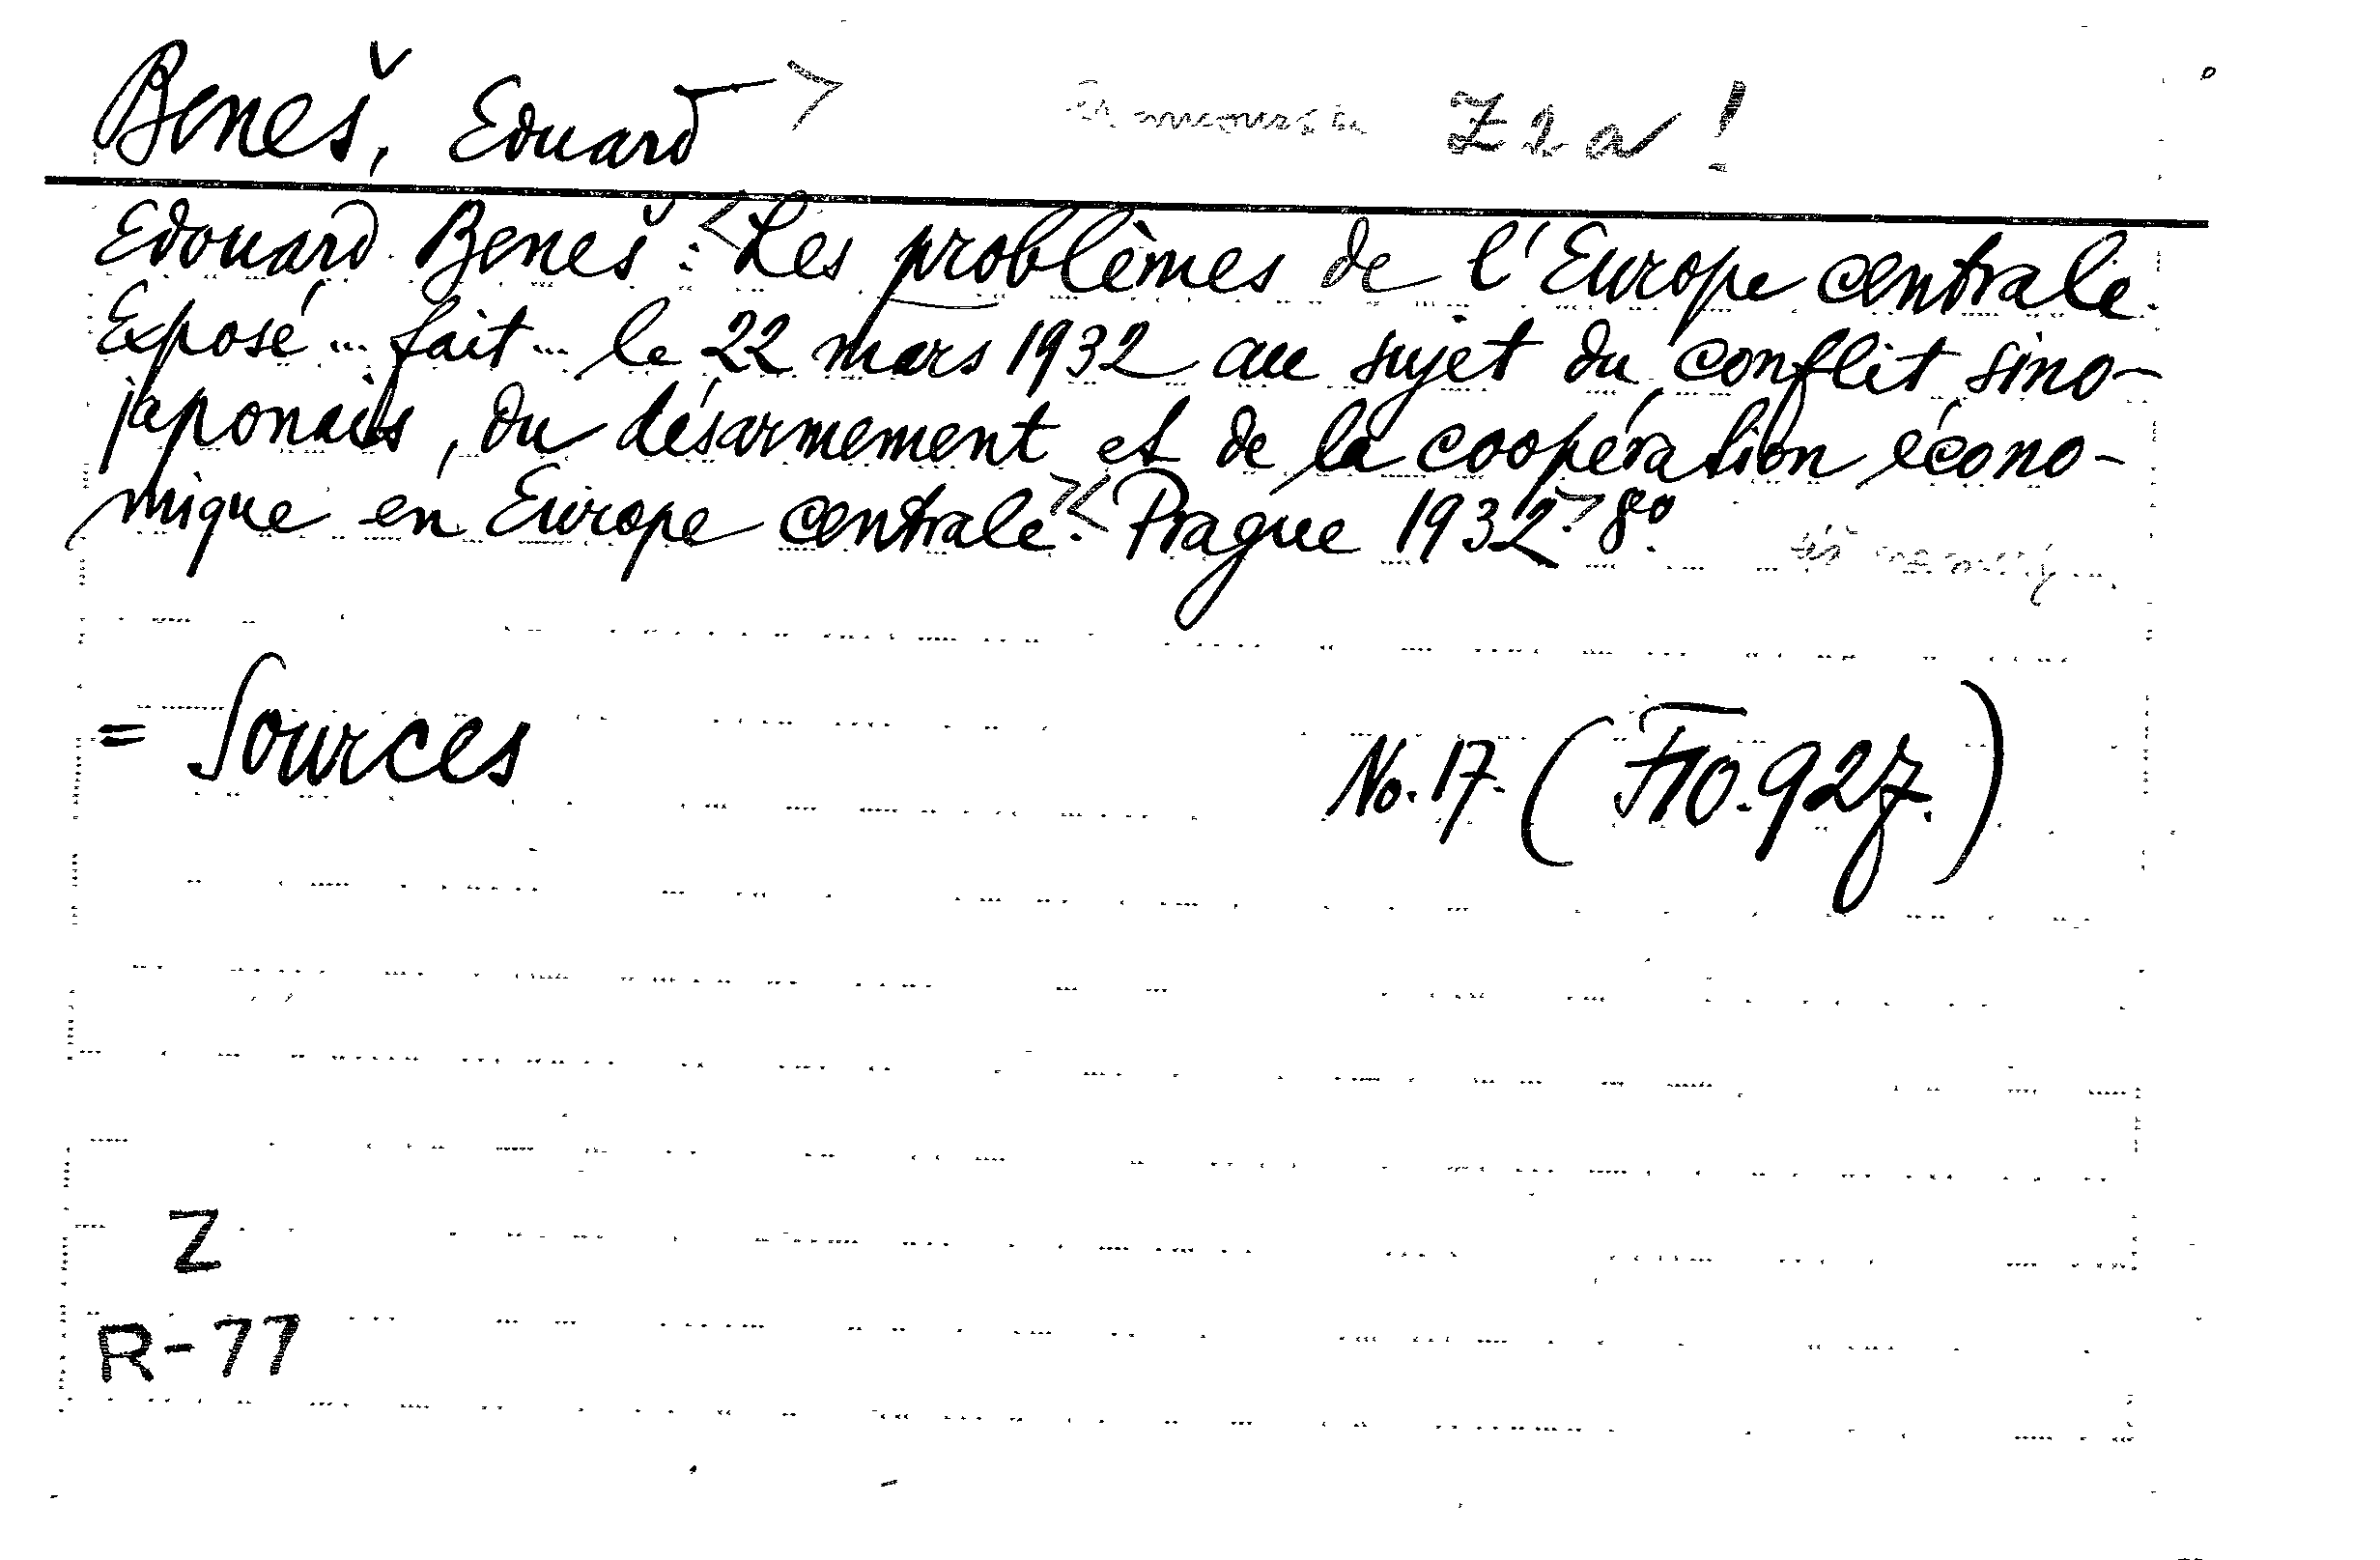 Beneš, Eduard > Z 2 a !
Edouard Beneš: <Les problèmes de l'Europe centrale.
Exposé ... fait ... le 22 mars 1932 au sujet du conflit sino-
japonais, du désarmement et de la coopération écono-
mique en Europe centrale.>< Prague 1932.> 8°.
= Sources No. 17. (F10.927.)
Z
R-77